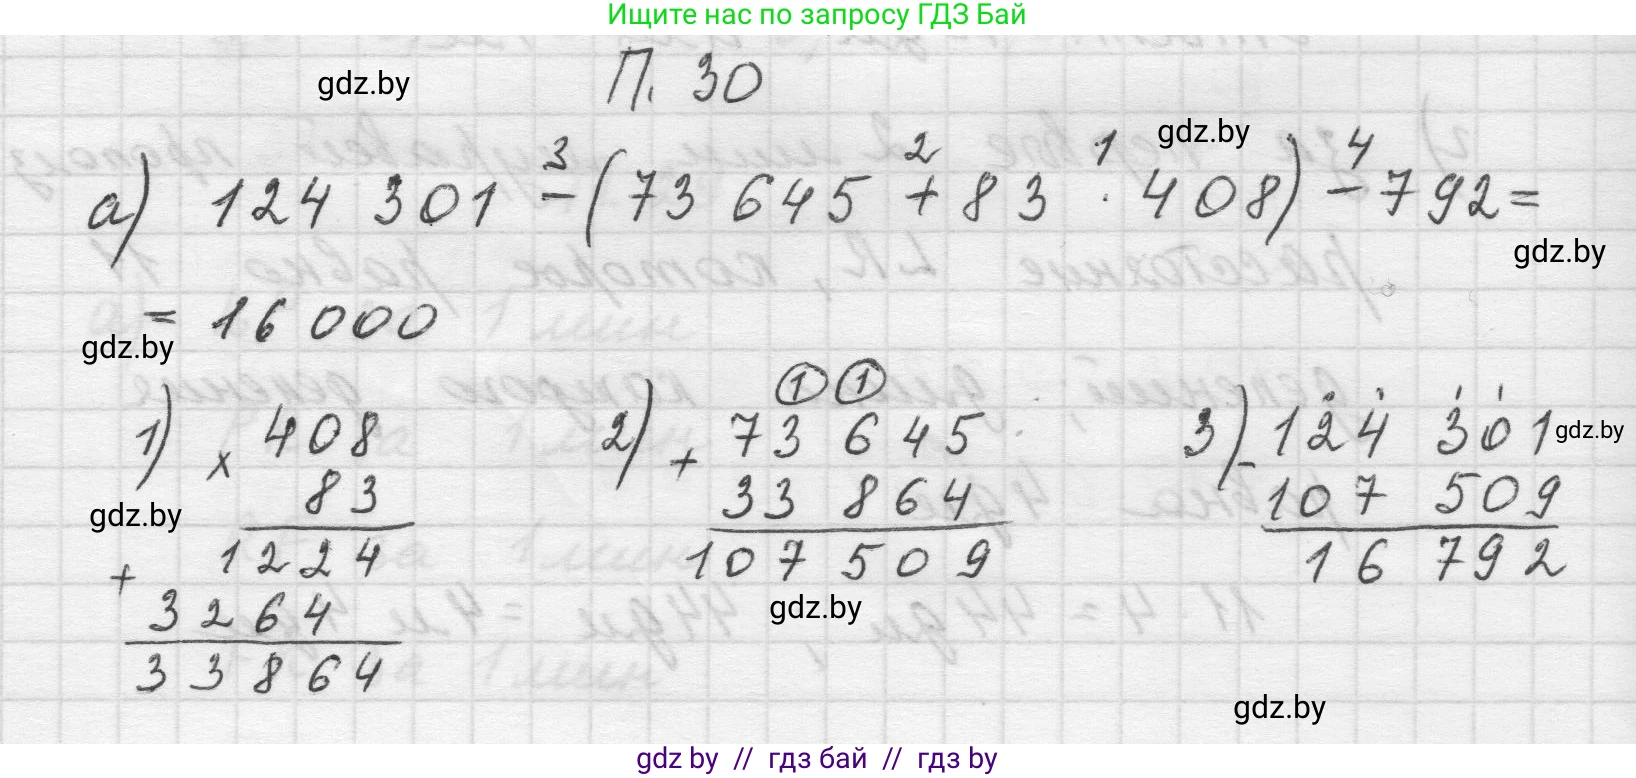 Ищите нас по запросу ГДЗ Бай
П. 30
gdz.by
gdz.by
3 2 1 4
а) 124 301 - (73 645 + 83 · 408) - 792 =
gdz.by
= 16 000
gdz.by
1) × 408
83
1224
+ 3264
33864
gdz.by
2) 1 1
+ 73 645
33 864
107 509
gdz.by
3) - 124 301
107 509
16 792
gdz.by
gdz.by
gdz by // гдз бай // гдз by